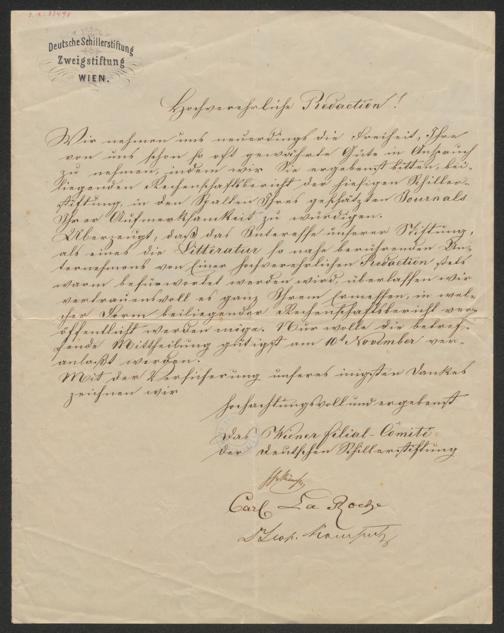 Deutsche Schillerstiftung
Zweigstiftung
WIEN.
Hochverehrliche Redaction!
Wir nehmen uns neuerdings die Freiheit, Ihre
von uns schon so oft gewährte Güte in Anspruch
zu nehmen, indem wir Sie ergebenst bitten, bei-
liegenden Rechenschaftsbericht der hiesigen Schiller-
stiftung, in den Spalten Ihres geschätzten Journals
Ihrer Aufmerksamkeit zu würdigen.
Überzeugt, daß das Interesse unserer Stiftung,
als eines die Litteratur so nahe berührenden Un-
ternehmens von Einer hochverehrlichen Redaction stets
warm befürwortet werden wird, überlassen wir
vertrauensvoll es ganz Ihrem Ermessen, in wel-
cher Form beiliegender Rechenschaftsbericht ver-
öffentlicht werden möge. Nur wolle die betref-
fende Mittheilung gütigst am 10t November ver-
anlaßt werden.
Mit der Versicherung unseres innigsten Dankes
zeichnen wir
hochachtungsvoll und ergebenst
Das Wiener Filial-Comité
der deutschen Schillerstiftung
Carl La Roche
Dr Leop. Kompert